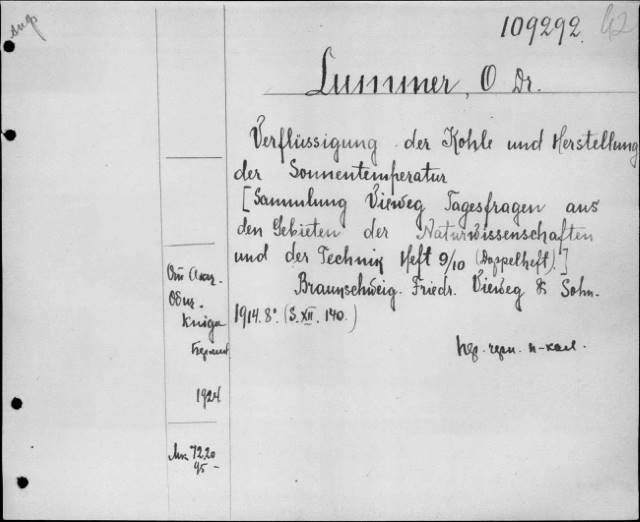 109292. 42
Lummer, O Dr.
Verflüssigung der Kohle und Herstellung
der Sonnentemperatur
[Sammlung Vieweg Tagesfragen aus
den Gebieten der Naturwissenschaften
und der Technik Heft 9/10 (Doppelheft).]
Braunschweig. Friedr. Vieweg & Sohn.
1914. 8º. (S. XII. 140.)
Книга
1924